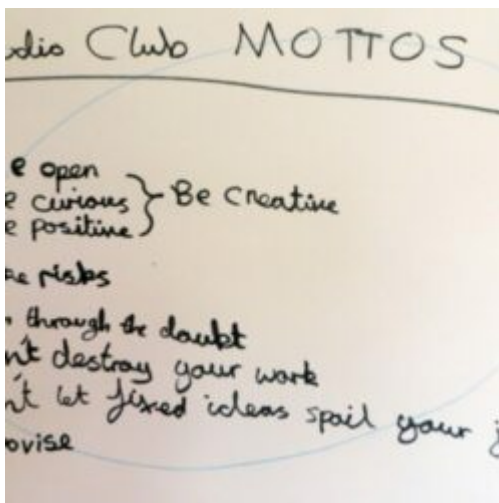 dio Club MOTTOS
e open
e curious } Be Creative
e positive
ke risks
through the doubt
n't destroy your work
n't let fixed ideas spoil your
ovise